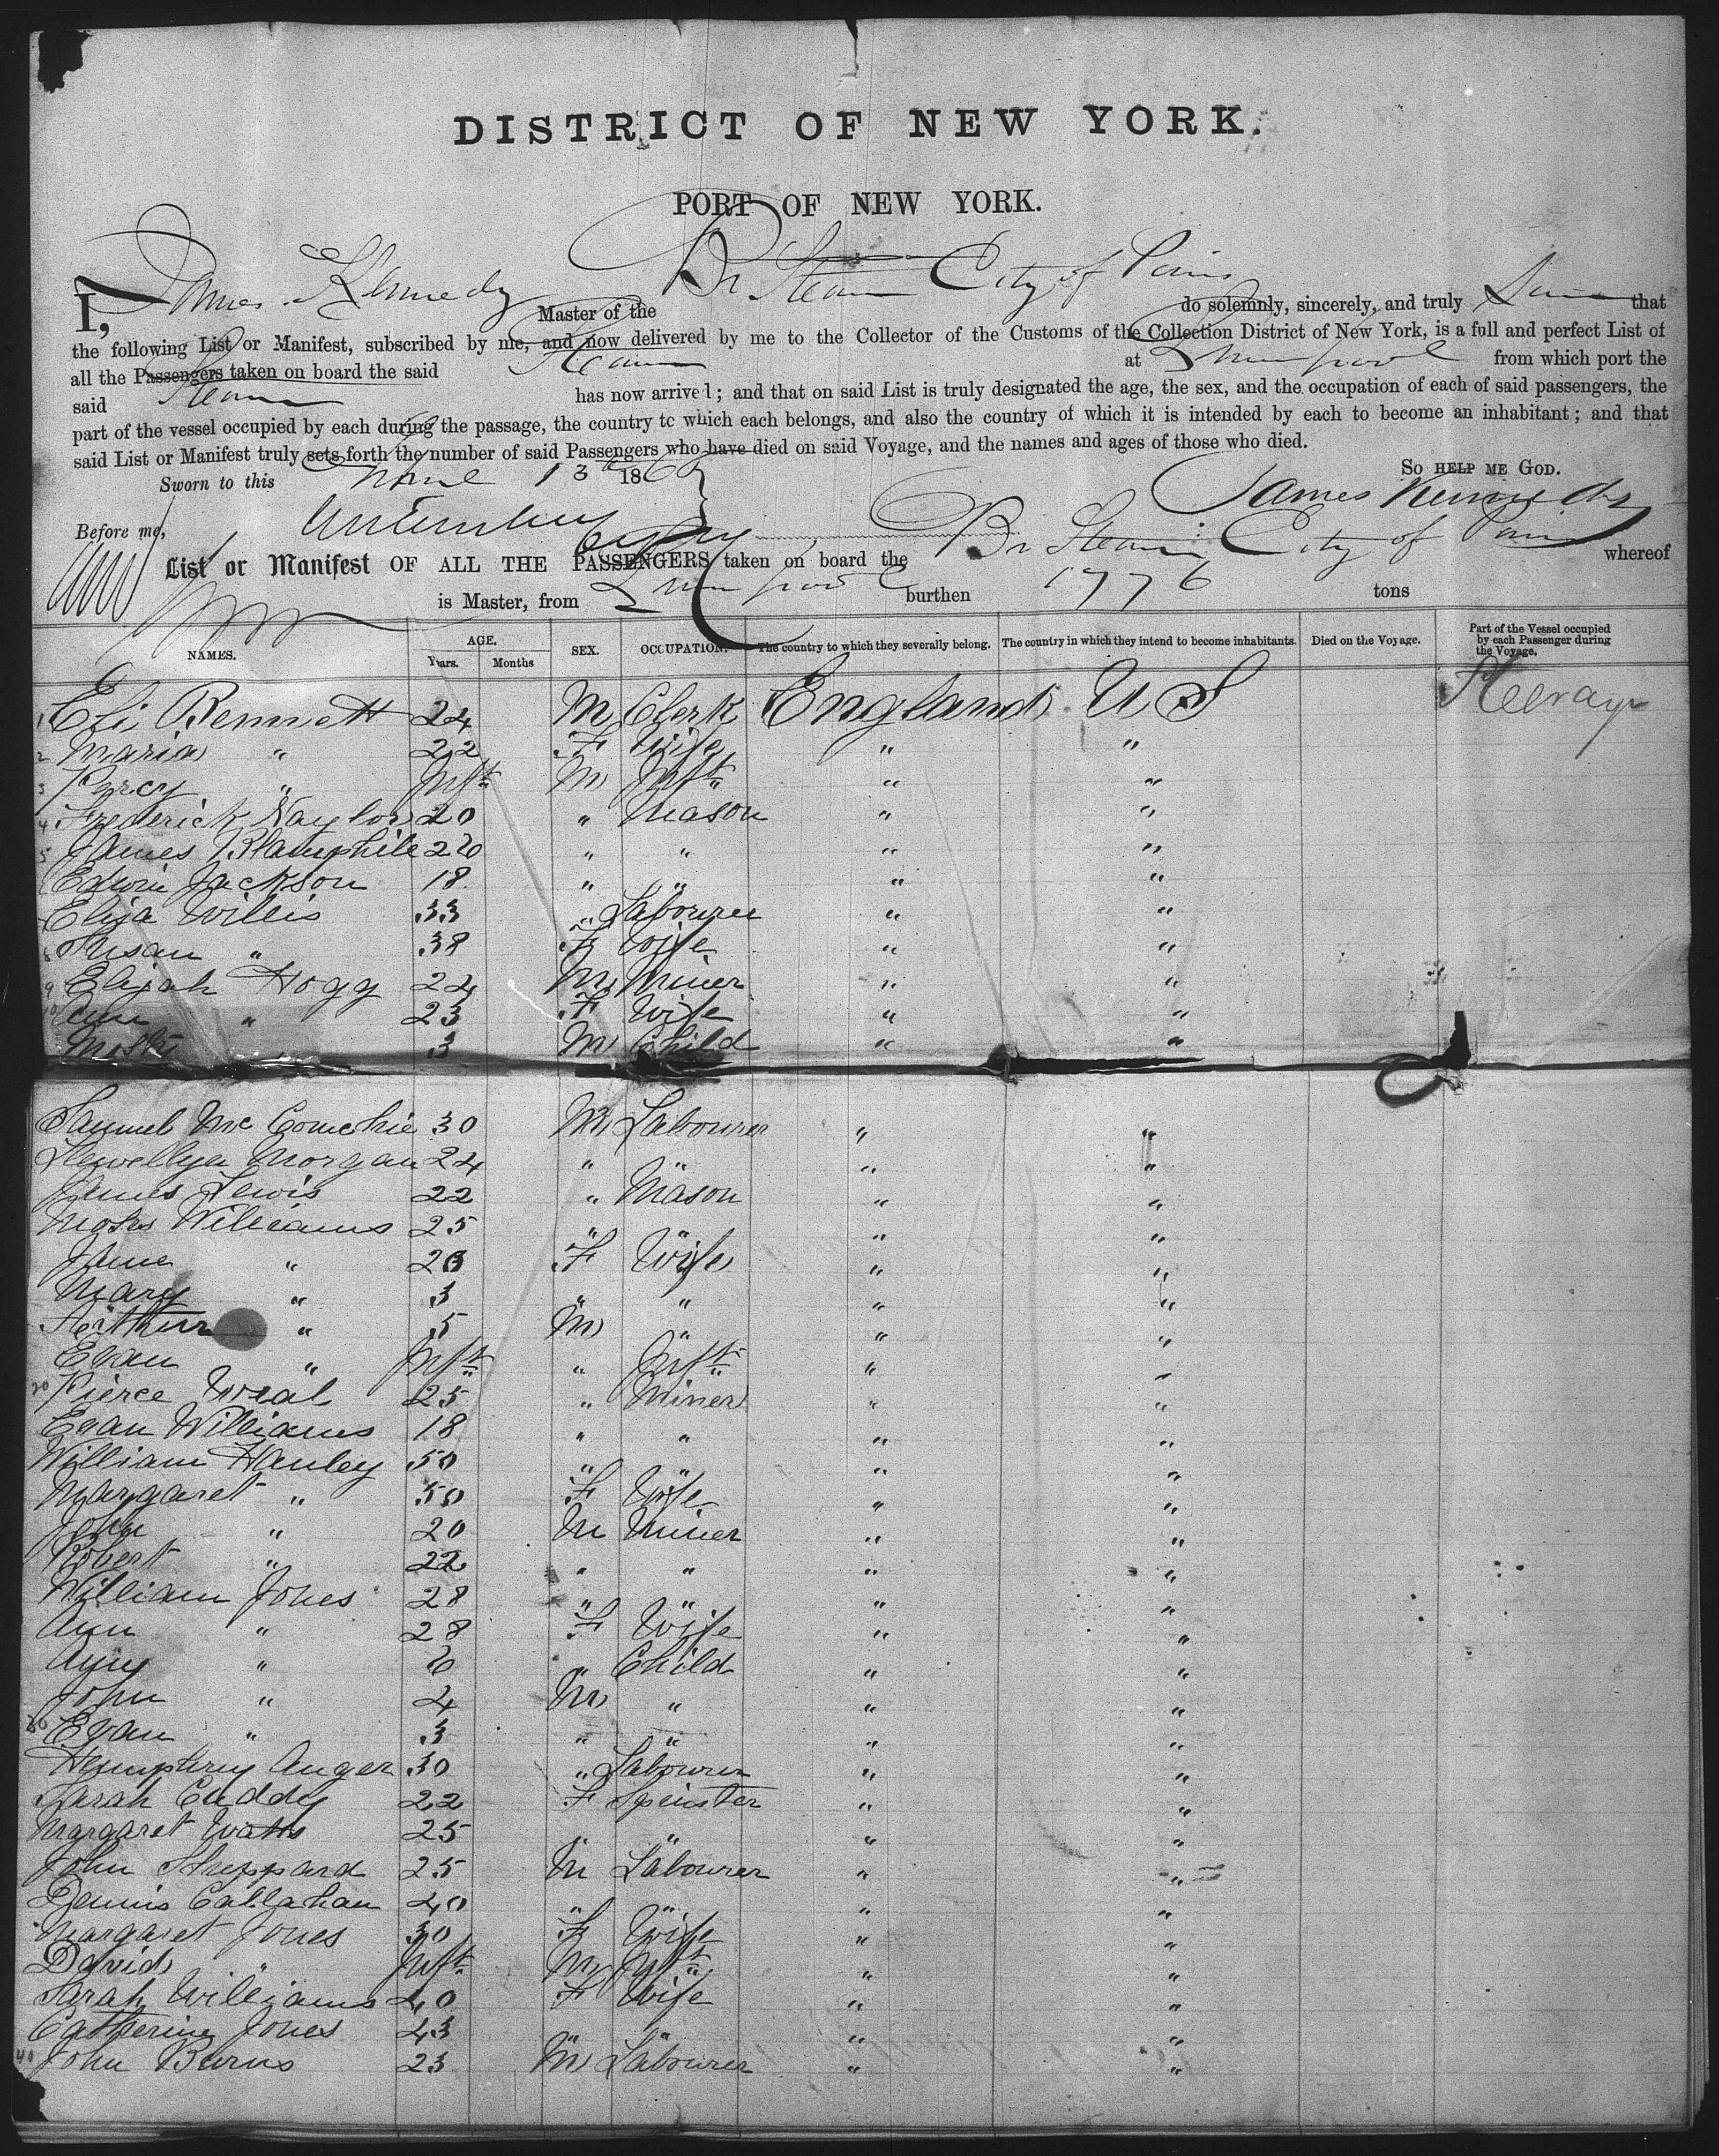 DISTRICT OF NEW YORK.
PORT OF NEW YORK.
I, James Kennedy Master of the Br Steam City of Paris do solemnly, sincerely, and truly that
the following List or Manifest, subscribed by me, and now delivered by me to the Collector of the Customs of the Collection District of New York, is a full and perfect List of
all the Passengers taken on board the said Steam at Liverpool from which port the
said Steam has now arrived; and that on said List is truly designated the age, the sex, and the occupation of each of said passengers, the
part of the vessel occupied by each during the passage, the country to which each belongs, and also the country of which it is intended by each to become an inhabitant; and that
said List or Manifest truly sets forth the number of said Passengers who have died on said Voyage, and the names and ages of those who died.
So HELP ME GOD.
Sworn to this June 13th 186
James Kennedy
Before me,
List or Manifest OF ALL THE PASSENGERS taken on board the Br Steam City of Paris whereof
is Master, from Liverpool burthen 1776 tons
NAMES. AGE. Years. Months SEX. OCCUPATION. The country to which they severally belong. The country in which they intend to become inhabitants. Died on the Voyage. Part of the Vessel occupied by each Passenger during the Voyage.
1 Eli Bennett 24 M Clerk England U S Steerage
2 Maria " 22 F Wife " "
3 Percy " Inft M Inft " "
4 Frederick Naylor 20 " Mason " "
5 James Blamphile 26 " " " "
Edwin Jackson 18 " " " "
Eliza Willis 33 " Labourer " "
8 Susan " 38 F Wife " "
9 Elijah Hogg 24 M Miner " "
10 Ann " 23 F Wife " "
3 M Child " "
Samuel Mc Comchie 30 M Labourer " "
Llewellyn Morgan 24 " " " "
James Lewis 22 " Mason " "
Moses Williams 25 " " " "
Jane " 23 F Wife " "
Mary " 3 " " " "
Arthur " 5 M " " "
Evan " Inft " Inft " "
20 Pierce 25 " Miner " "
Evan Williams 18 " " " "
William Hanley 50 " " " "
Margaret " 50 F Wife " "
John " 20 M Miner " "
Robert " 22 " " " "
William Jones 28 " " " "
Ann " 28 F Wife " "
Amy " 6 " Child " "
John " 4 M " " "
30 Evan " 3 " " " "
Humphrey Anger 30 " Labourer " "
Sarah Caddy 22 F Spinster " "
Margaret Watts 25 " " " "
John Sheppard 25 M Labourer " "
Dennis Callahan 40 " " " "
Margaret Jones 30 F Wife " "
David " Inft M Inft " "
Sarah Williams 40 F Wife " "
Catherine Jones 43 " " " "
40 John Burns 23 M Labourer " "